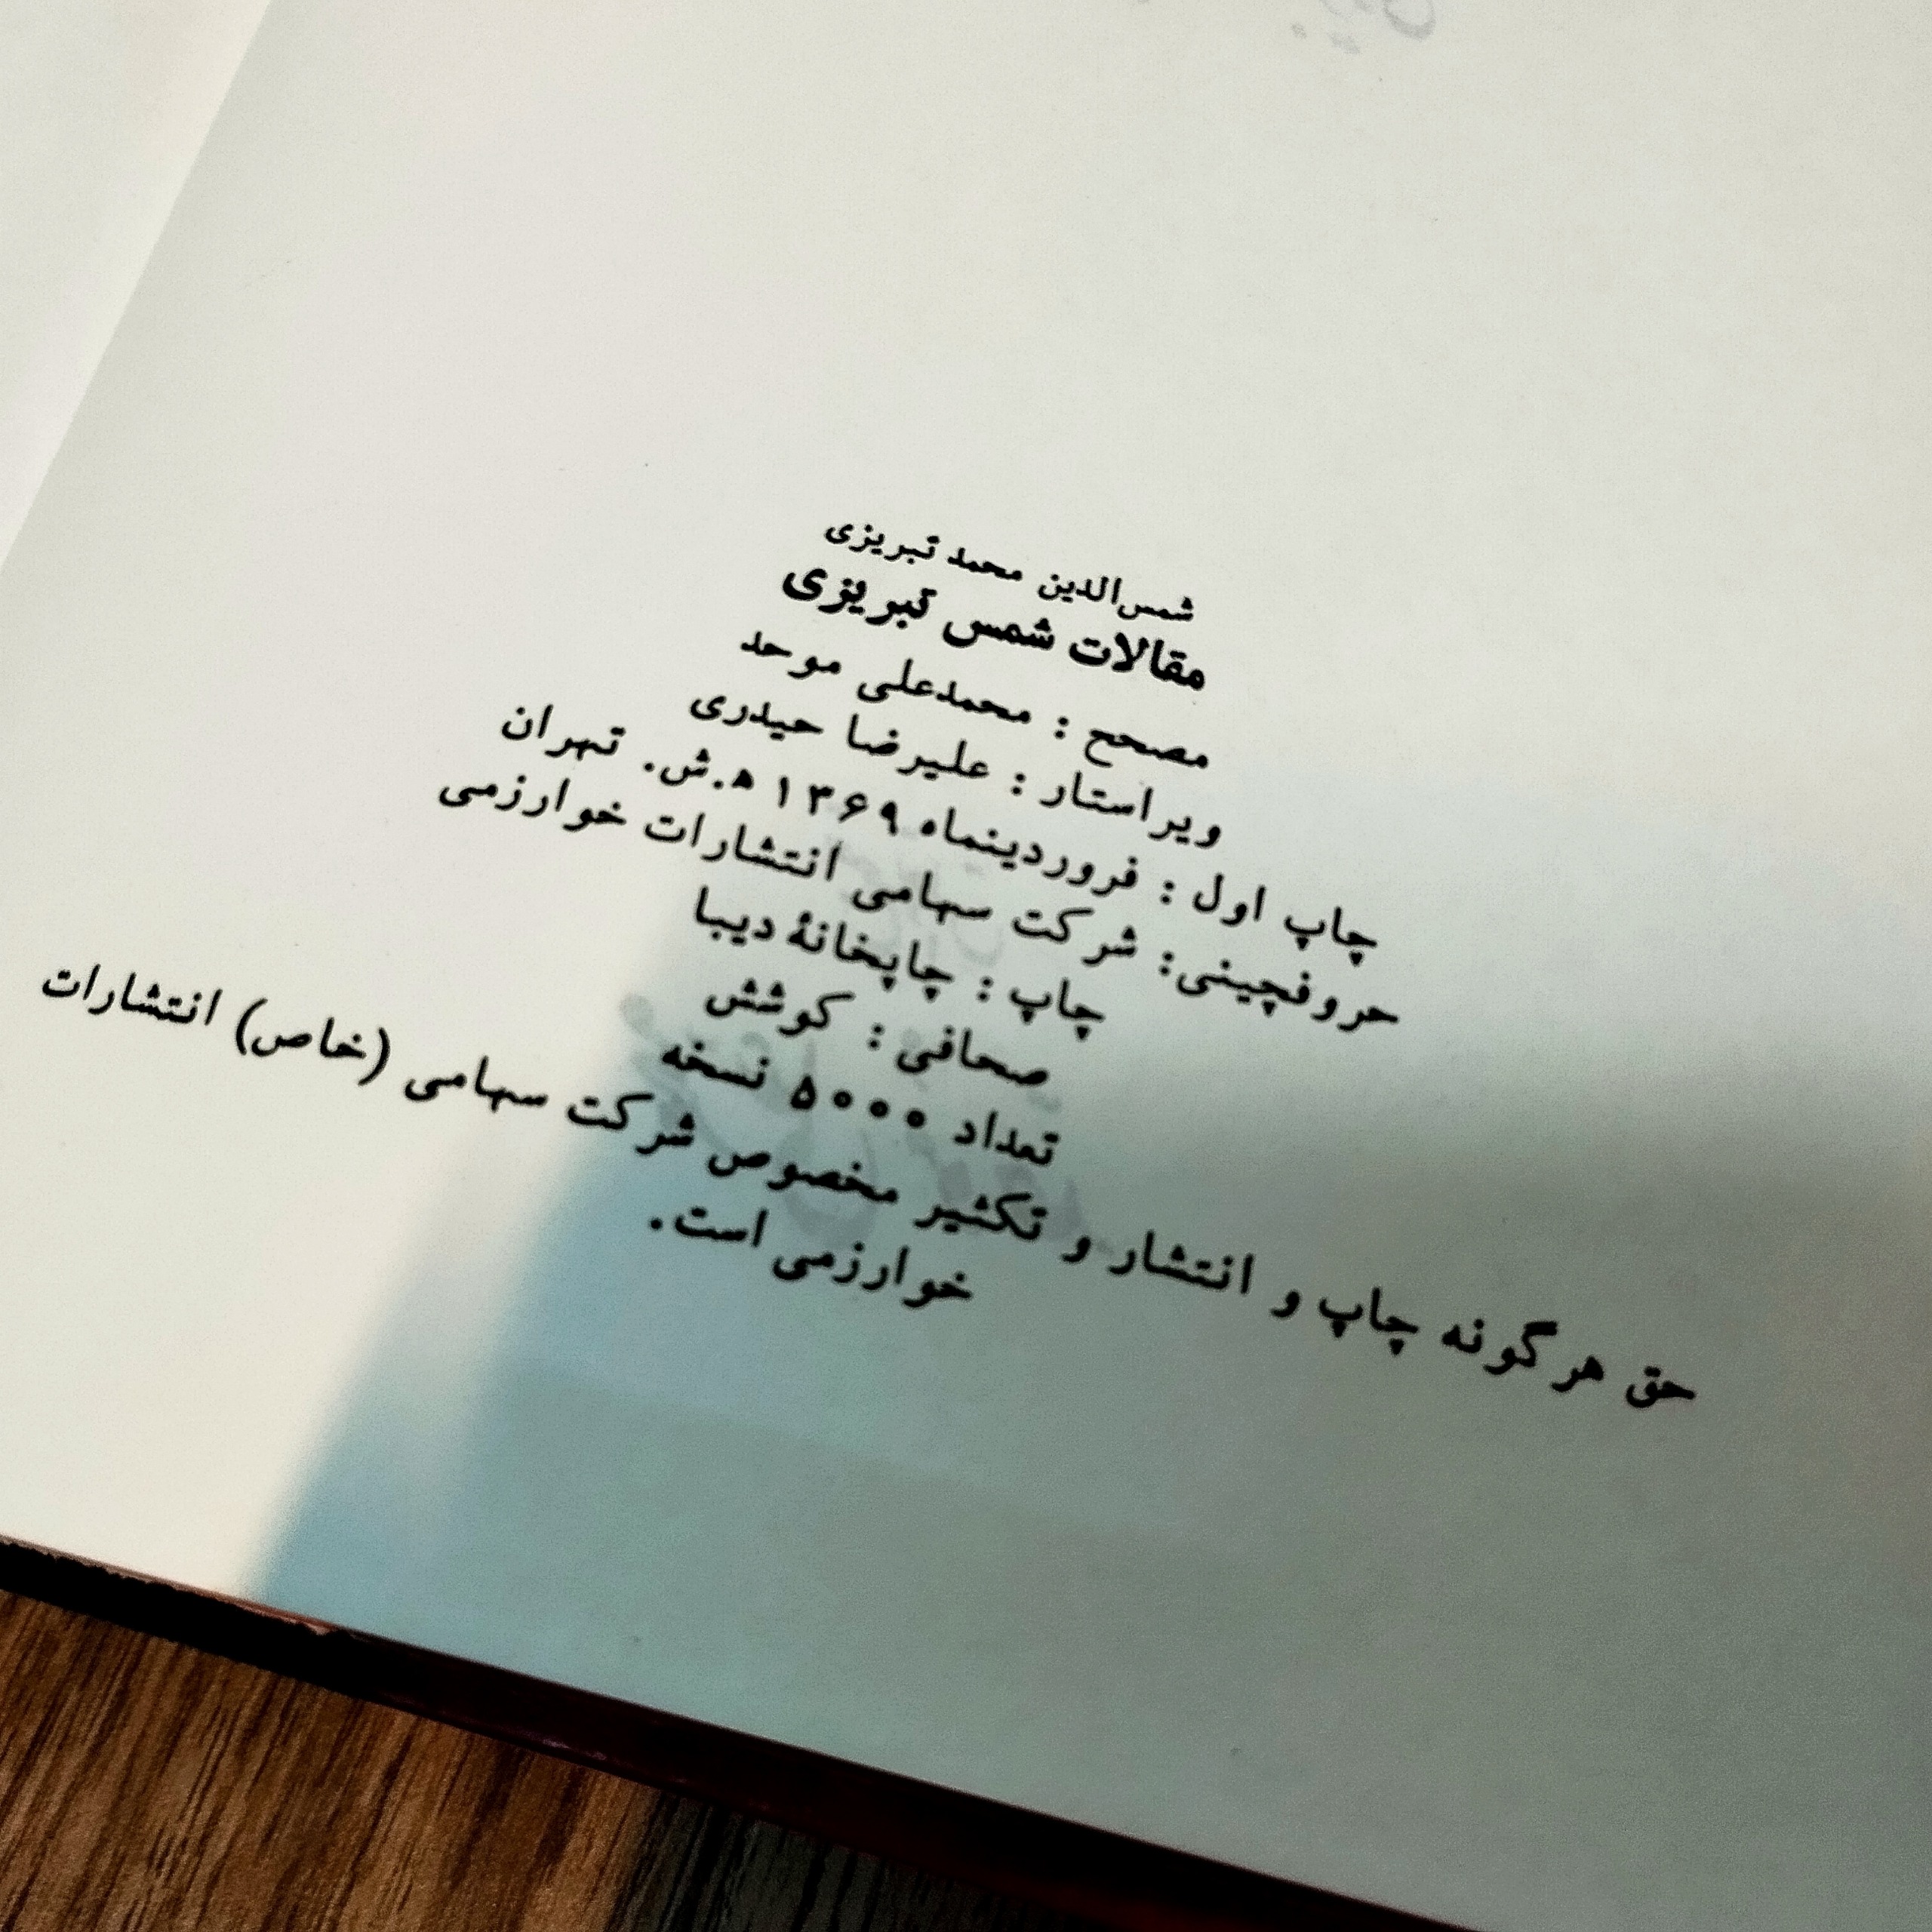 شمس‌الدین محمد تبریزی
مقالات شمس تبریزی
مصحح : محمدعلی موحد
ویراستار : علیرضا حیدری
چاپ اول : فروردینماه ۱۳۶۹ ه‍.ش. تهران
حروفچینی: شرکت سهامی انتشارات خوارزمی
چاپ : چاپخانهٔ دیبا
صحافی : کوشش
تعداد ۵۰۰۰ نسخه
حق هرگونه چاپ و انتشار و تکثیر مخصوص شرکت سهامی (خاص) انتشارات
خوارزمی است.